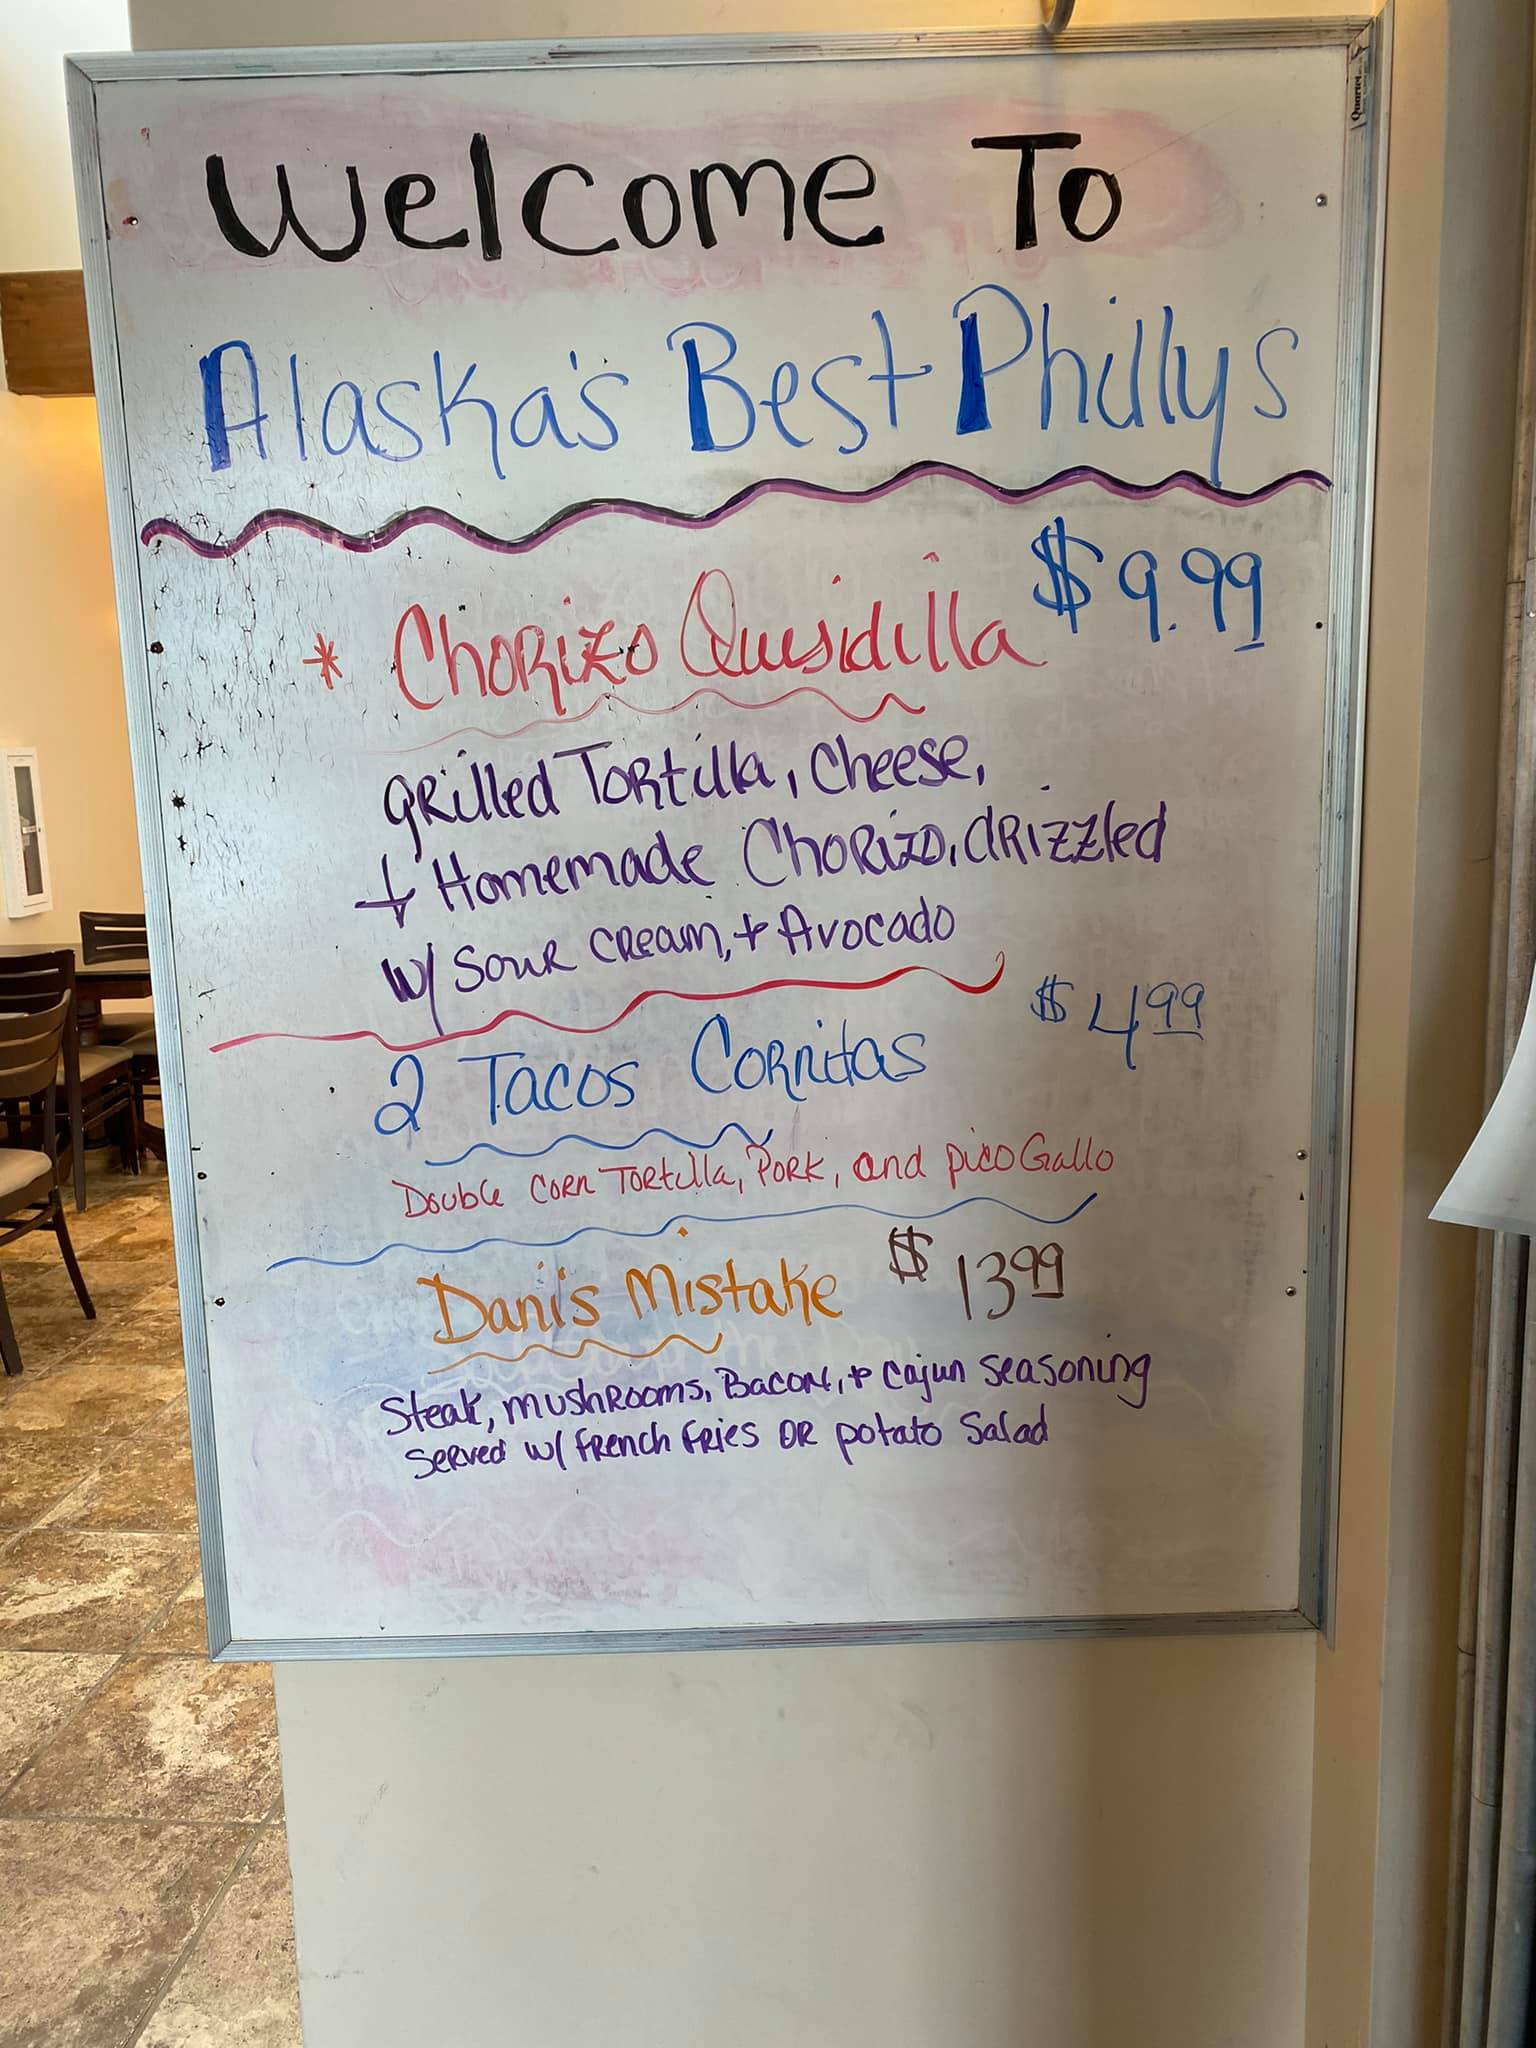 Welcome To
Alaska's Best Phillys
* Chorizo Quesidilla $9.99
grilled Tortilla, Cheese,
+ Homemade Chorizo, drizzled
w/ Sour Cream, + Avocado
2 Tacos Cornitas $4.99
Double Corn Tortilla, Pork, and pico Gallo
Dani's Mistake $13.99
Steak, mushrooms, Bacon, + Cajun Seasoning
Served w/ French Fries or potato Salad
Quartet